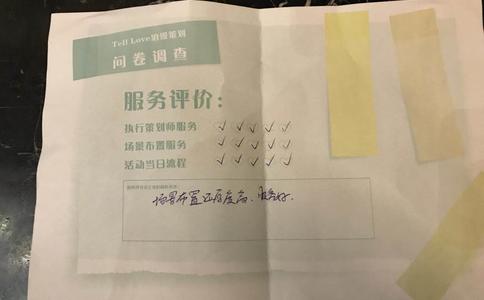 Tell Love浪漫策划
问卷调查
服务评价：
执行策划师服务 ✓ ✓ ✓ ✓ ✓
场景布置服务 ✓ ✓ ✓ ✓ ✓
活动当日流程 ✓ ✓ ✓ ✓ ✓
场景布置还原度高、服务好.